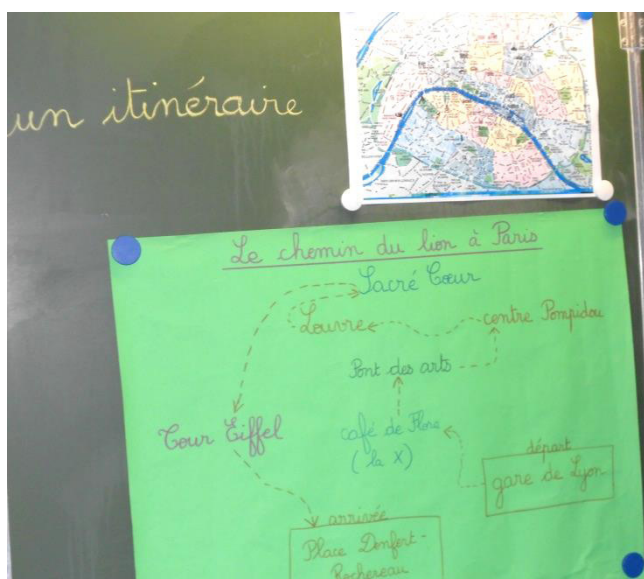 un itinéraire
Le chemin du lion à Paris
Sacré Cœur
Louvre
centre Pompidou
Pont des arts
Tour Eiffel
café de Flore
( la X )
départ
gare de Lyon
arrivée
Place Denfert-
Rochereau